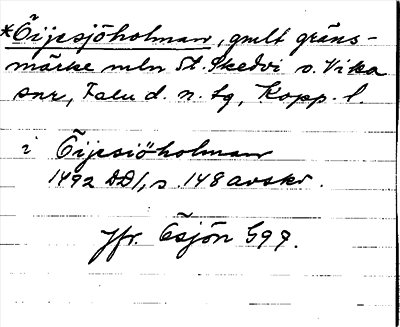 *Õijesjöholman, gmlt gräns-
märke mln St. Skedvi o. Vika
snr, Falu d. n. tg, Kopp. l.
i Õijesiöholman
1492 DD1, s. 148 avskr.
Jfr. Ösjön G99.